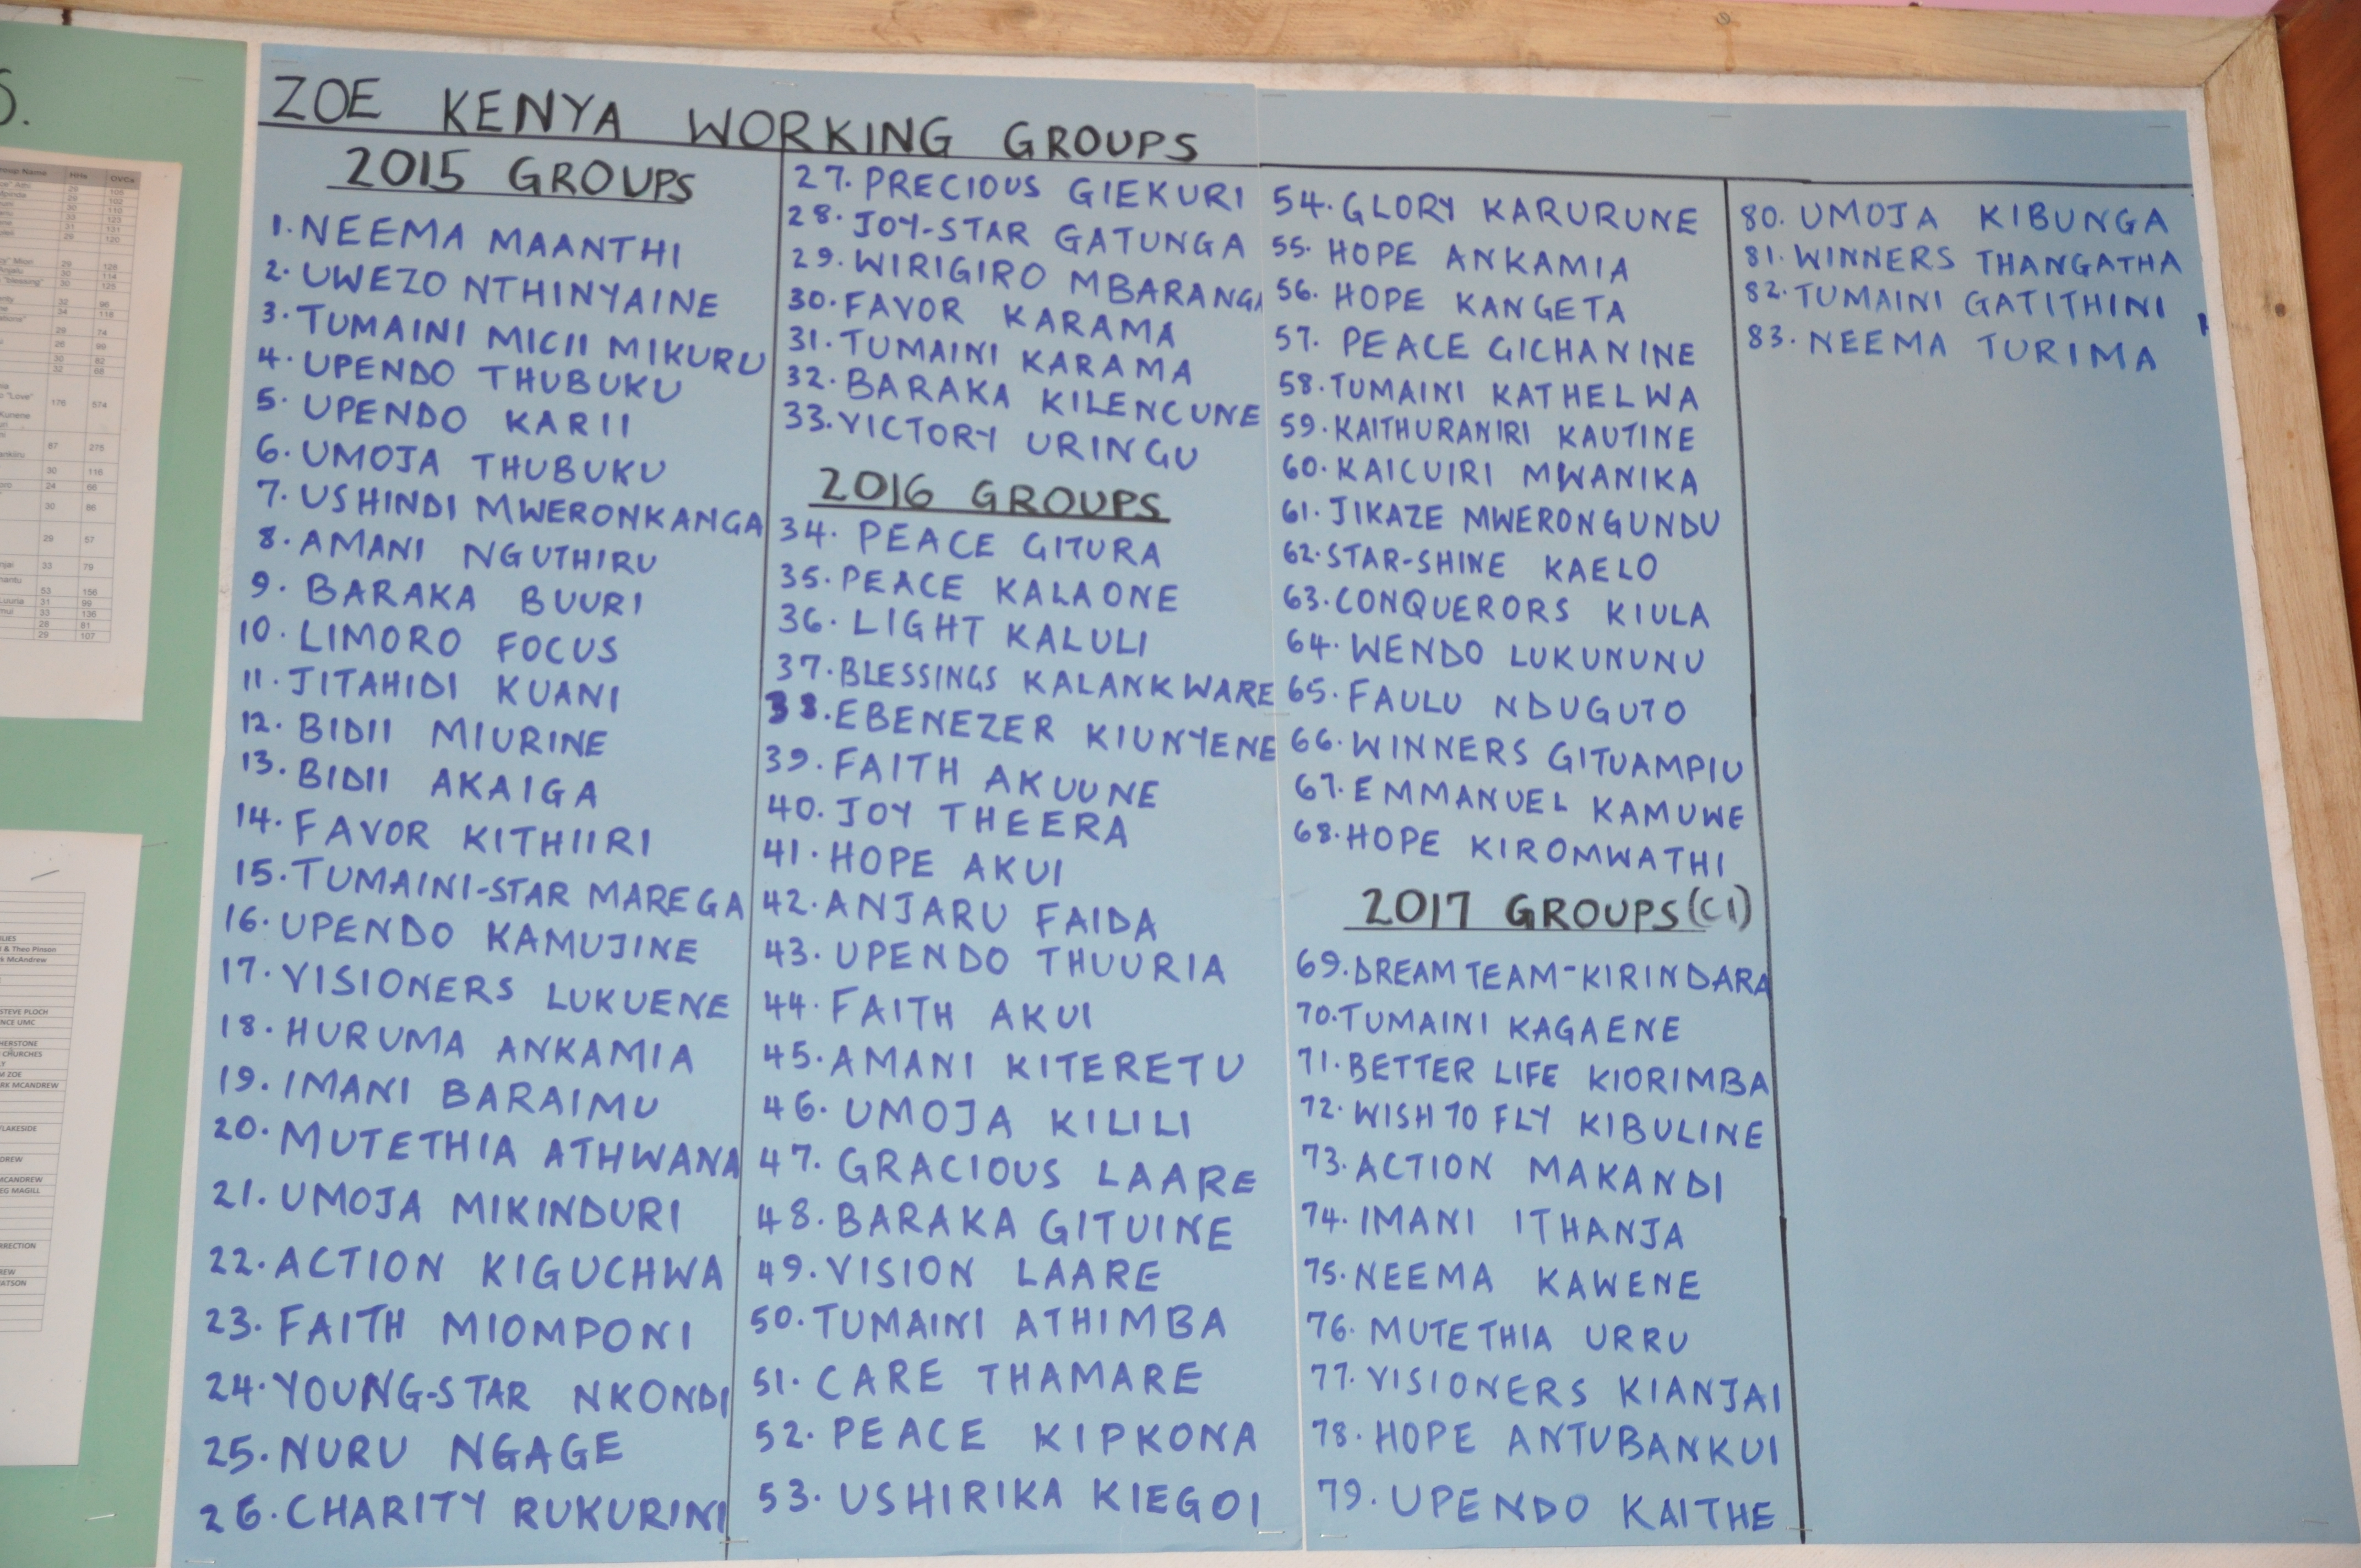 S.
roup Name HHs OVCs
29 105
29 102
30 110
33 123
31 131
29 120
29 126
30 114
"blessing" 30 125
32 96
34 118
29 74
26 99
30 82
32 68
"Love" 176 574
Kunene
67 275
30 116
24 66
30 86
29 57
njai 33 79
53 156
Luuria 31 99
mui 33 136
28 81
29 107
LIES
& Theo Pinson
k McAndrew
STEVE PLOCH
NCE UMC
HERSTONE
CHURCHES
M ZOE
RK MCANDREW
LAKESIDE
DREW
MCANDREW
EG MAGILL
RRECTION
REW
ATSON
ZOE KENYA WORKING GROUPS
2015 GROUPS
1. NEEMA MAANTHI
2. UWEZO NTHINYAINE
3. TUMAINI MICII MIKURU
4. UPENDO THUBUKU
5. UPENDO KARII
6. UMOJA THUBUKU
7. USHINDI MWERONKANGA
8. AMANI NGUTHIRU
9. BARAKA BUURI
10. LIMORO FOCUS
11. JITAHIDI KUANI
12. BIDII MIURINE
13. BIDII AKAIGA
14. FAVOR KITHIIRI
15. TUMAINI-STAR MAREGA
16. UPENDO KAMUJINE
17. VISIONERS LUKUENE
18. HURUMA ANKAMIA
19. IMANI BARAIMU
20. MUTETHIA ATHWANA
21. UMOJA MIKINDURI
22. ACTION KIGUCHWA
23. FAITH MIOMPONI
24. YOUNG-STAR NKONDI
25. NURU NGAGE
26. CHARITY RUKURINI
27. PRECIOUS GIEKURI
28. JOY-STAR GATUNGA
29. WIRIGIRO MBARANGA
30. FAVOR KARAMA
31. TUMAINI KARAMA
32. BARAKA KILENCUNE
33. VICTORY URINGU
2016 GROUPS
34. PEACE GITURA
35. PEACE KALAONE
36. LIGHT KALULI
37. BLESSINGS KALANKWARE
38. EBENEZER KIUNYENE
39. FAITH AKUUNE
40. JOY THEERA
41. HOPE AKUI
42. ANJARU FAIDA
43. UPENDO THUURIA
44. FAITH AKUI
45. AMANI KITERETU
46. UMOJA KILILI
47. GRACIOUS LAARE
48. BARAKA GITUINE
49. VISION LAARE
50. TUMAINI ATHIMBA
51. CARE THAMARE
52. PEACE KIPKONA
53. USHIRIKA KIEGOI
54. GLORY KARURUNE
55. HOPE ANKAMIA
56. HOPE KANGETA
57. PEACE GICHANINE
58. TUMAINI KATHELWA
59. KAITHURANIRI KAUTINE
60. KAICUIRI MWANIKA
61. JIKAZE MWERONGUNDU
62. STAR-SHINE KAELO
63. CONQUERORS KIULA
64. WENDO LUKUNUNU
65. FAULU NDUGUTO
66. WINNERS GITUAMPIU
67. EMMANUEL KAMUWE
68. HOPE KIROMWATHI
2017 GROUPS (C1)
69. DREAM TEAM-KIRINDARA
70. TUMAINI KAGAENE
71. BETTER LIFE KIORIMBA
72. WISH TO FLY KIBULINE
73. ACTION MAKANDI
74. IMANI ITHANJA
75. NEEMA KAWENE
76. MUTETHIA URRU
77. VISIONERS KIANJAI
78. HOPE ANTUBANKUI
79. UPENDO KAITHE
80. UMOJA KIBUNGA
81. WINNERS THANGATHA
82. TUMAINI GATITHINI
83. NEEMA TURIMA